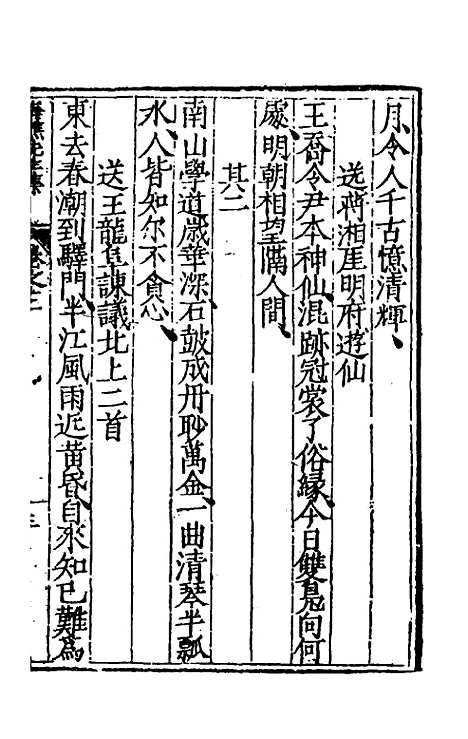 月令人千古憶清輝
送蔣湘厓明府遊仙
王喬令尹本神仙混跡冠裳了俗緣今日雙鳧向何
處明朝相望隔人間
其二
南山學道歲華深石皷成丹耿萬金一曲清琴半瓢
水人皆知尔不貪心
送王龍皐諫議北上二首
東去春潮到驛門半江風雨近黃昏自來知己難爲
卷之